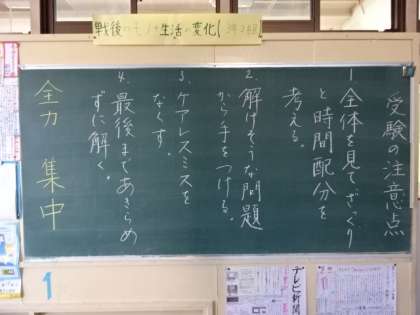 戦後 生活の変化
受験の注意点
1 全体を見てざっくり
と時間配分を
考える。
2. 解けそうな問題
から手をつける。
3. ケアレスミスを
なくす。
4. 最後まであきらめ
ずに解く。
全力 集中
1
テレビ新聞